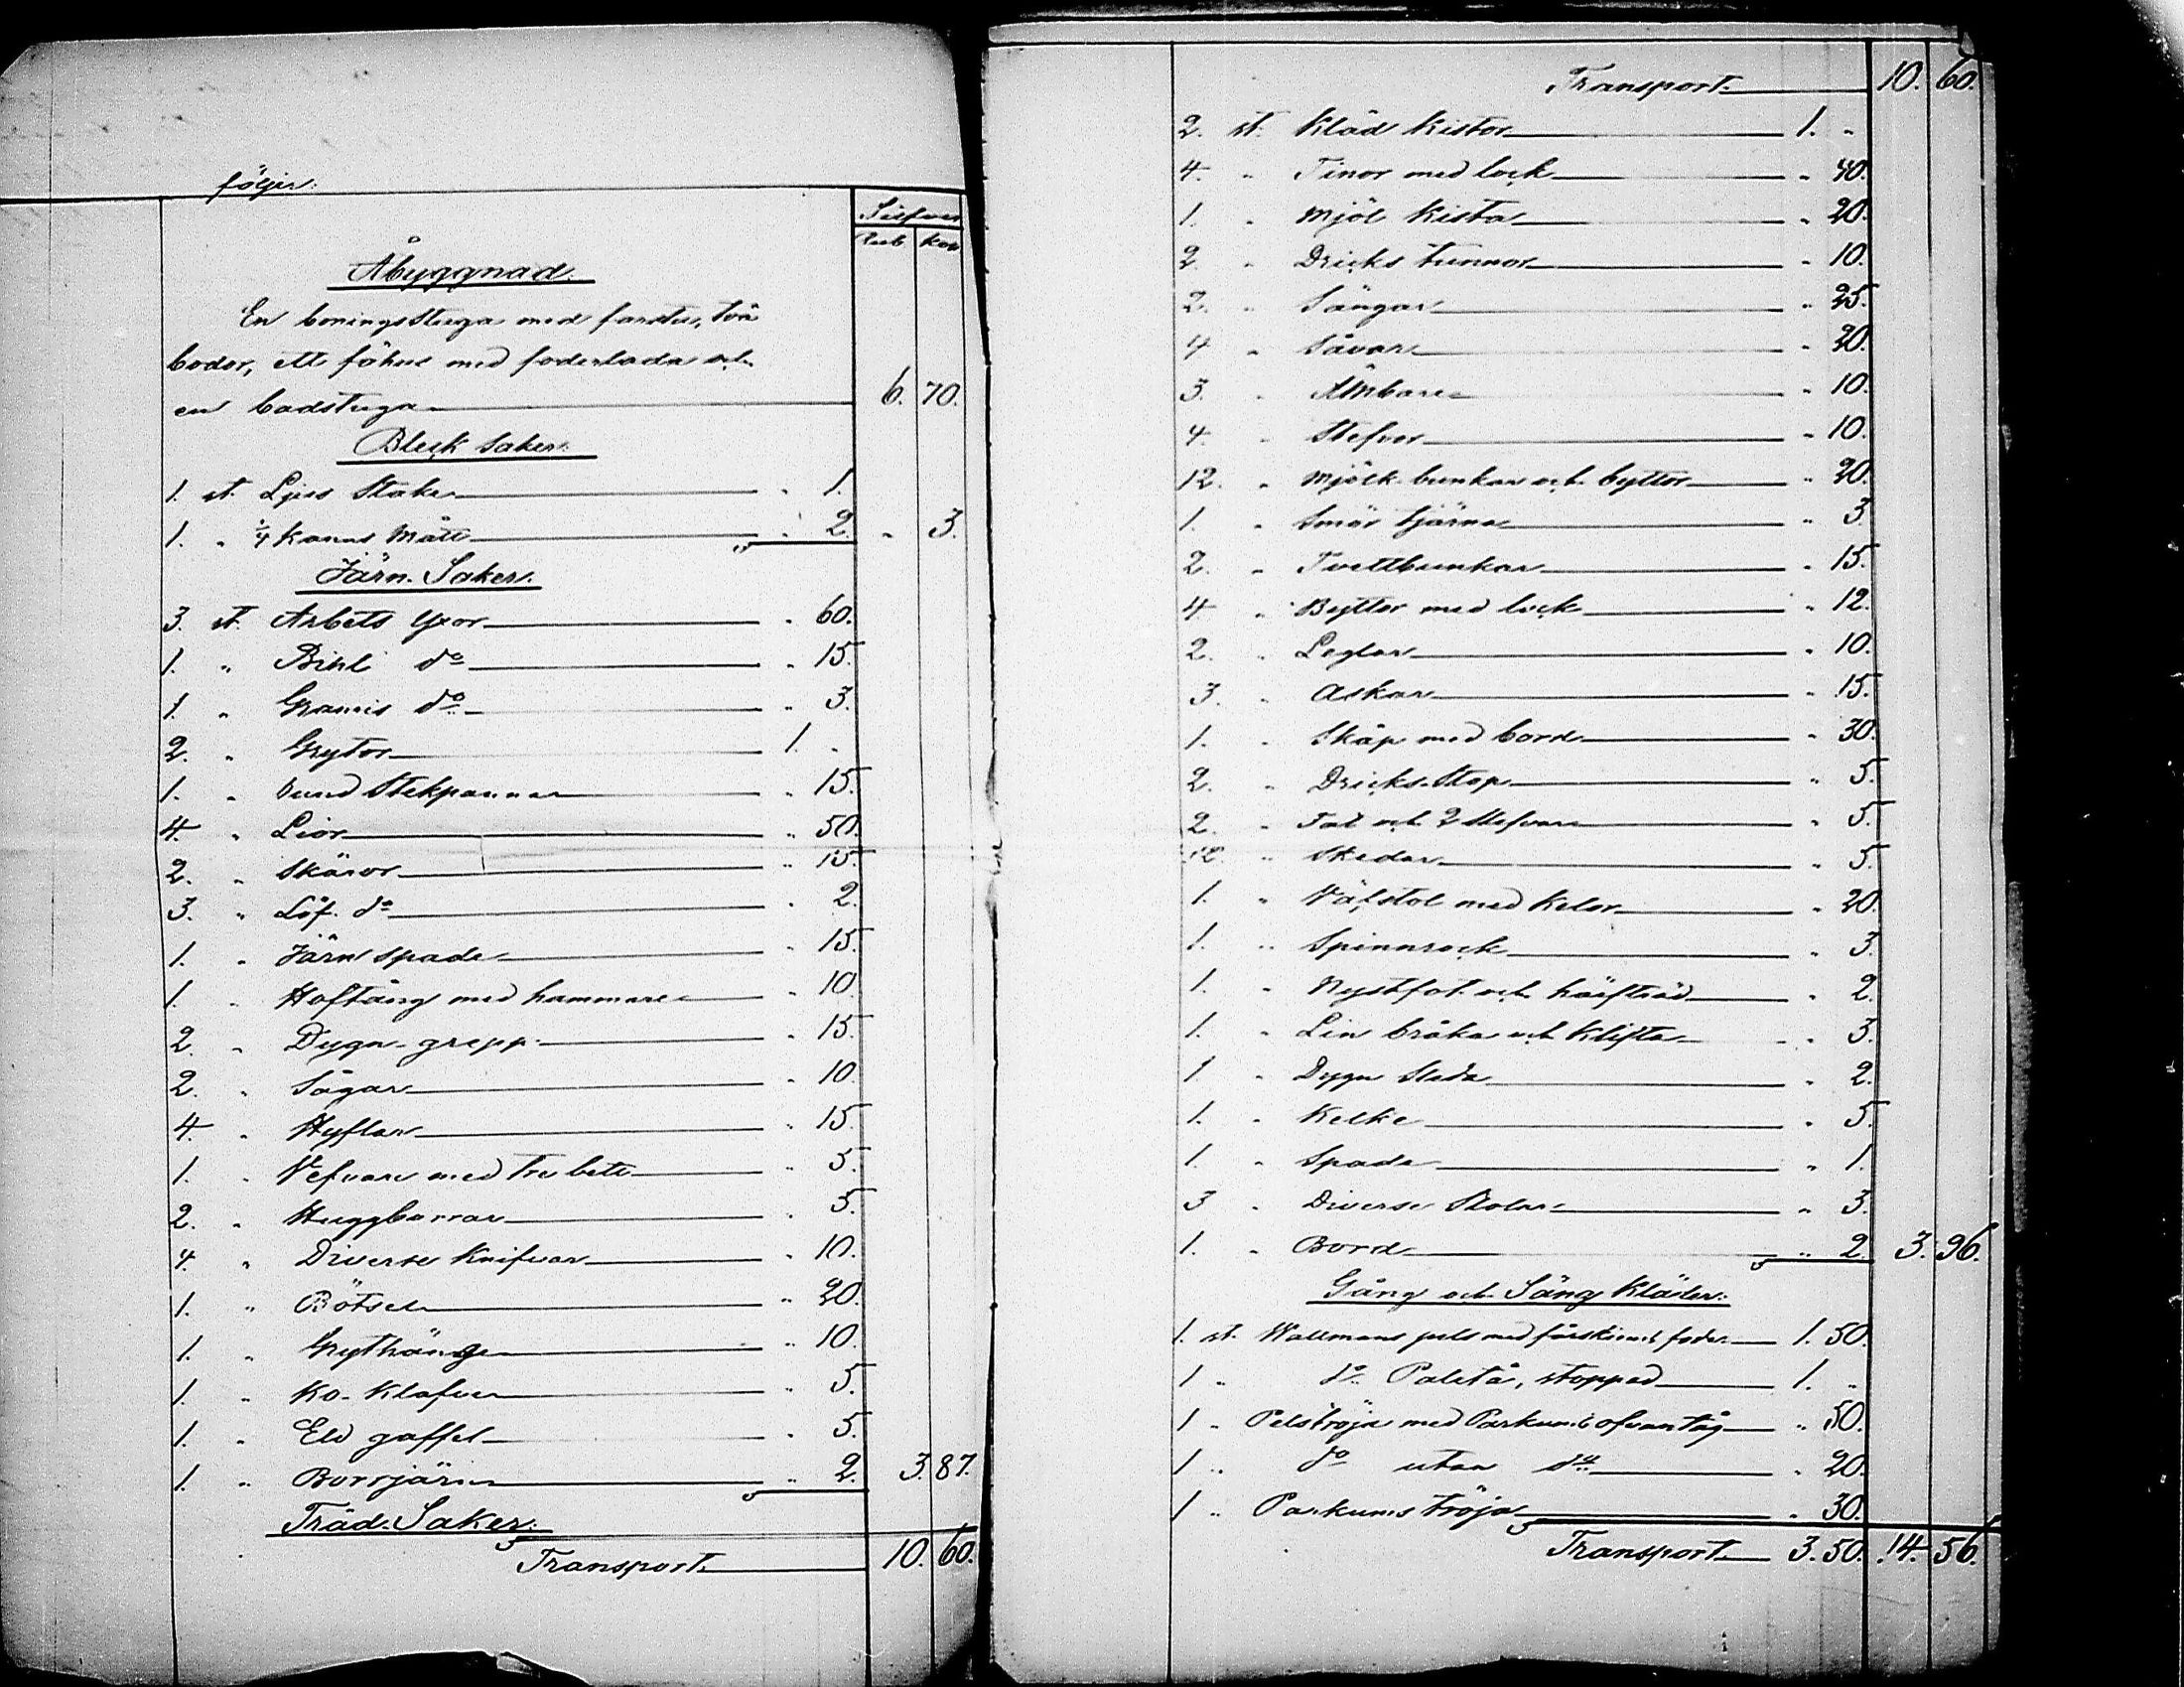 följer:
Silfver
Rub. Kop
Åbyggnad.
En boningsstuga med farstu, två
bodor, ett fähus med foderlada och
en badstuga 6. 70.
Bleck saker.
1. st. Ljus Stake " 1.
1. " 1/4 kanns Mått " 2. " 3.
Järn. Saker.
3. st. Arbets yxor " 60.
1. " Bihl do " 15.
1. " do " 3.
2. " Grytor 1. "
1. " Rund Stekpanna " 15.
4. " Lior " 50.
2. " Skäror " 15.
3. " Löf. do " 2.
1. " Järn spade " 15.
1. " Hoftång med hammare " 10.
2. " Dyga-grepp " 15.
2. " Sågar " 10.
4. " Hyflar " 15.
1. " Vefvare med tre bett " 5.
2. " Huggborrar " 5.
4. " Diverse Knifvar " 10.
1. " Bötsel " 20.
1. " Grythänge " 10.
1. " Ko-Klafve " 5.
1. " Eld gaffel " 5.
1. " Borrjärn " 2. 3. 87.
Träd. Saker.
Transport 10. 60.
Transport 10. 60.
2. st. Kläd Kistor 1. "
4. " Tinor med lock " 40.
1. " Mjöl Kista " 20.
2. " Dricks tunnor " 10.
2. " Sängar " 25.
4 " Såvar " 20.
3. " Ämbare " 10.
4. " Stefvor " 10.
12. " Mjölk-bunkar och byttor " 20.
1. " Smör tjärna " 3.
2. " Tvettbunkar " 15.
4 " Byttor med lock " 12.
2. " Leglar " 10.
3. " Askar " 15.
1. " Skåp med bord " 30.
2. " Dricks-Stop " 5.
2. " Fat och 2 Stefvare " 5.
12. " Skedar " 5.
1. " Väfstol med Kelor " 20.
1. " Spinnrock " 3.
1. " Nystfot och härfträd " 2.
1. " Lin bråka och Klifta " 3.
1. " Dygn Släda " 2.
1. " Kelke " 5.
1. " Spade " 1.
3 " Diverse Stolar " 3.
1. " Bord " 2. 3. 96.
Gång och Säng Kläder.
1. st. Wallmans pels med fårskinns foder 1. 50.
1 " do Paletå, stoppad 1. "
1 " Pelströja med Parkums ofvantåg " 50.
1 " do utan do " 20.
1 " Parkums tröja " 30.
Transport 3. 50. 14. 56.